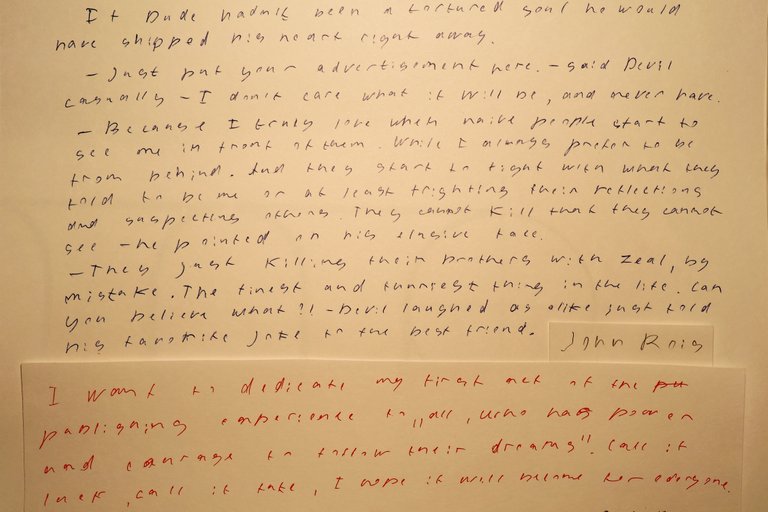 If Dude hadn't been a tortured soul he would
have shipped his heart right away.
- Just put your advertisement here. - said Devil
casually - I don't care what it will be, and never have.
- Because I truly love when naive people start to
see me in front of them. While I always prefer to be
from behind. And they start to fight with what they
told to be me or at least frighting their reflections
and suspecting others. They cannot kill that they cannot
see - he pointed on his elusive face.
- They just killing their brothers with zeal, by
mistake. The finest and funniest thing in the life. Can
you believe what?! - Devil laughed as alike just told
his favorite joke to the best friend.
John Rois
I want to dedicate my first act of the pu
publishing experience to „all, who has power
and courage to follow their dreams". Call it
luck, call it fate, I hope it will become for everyone.